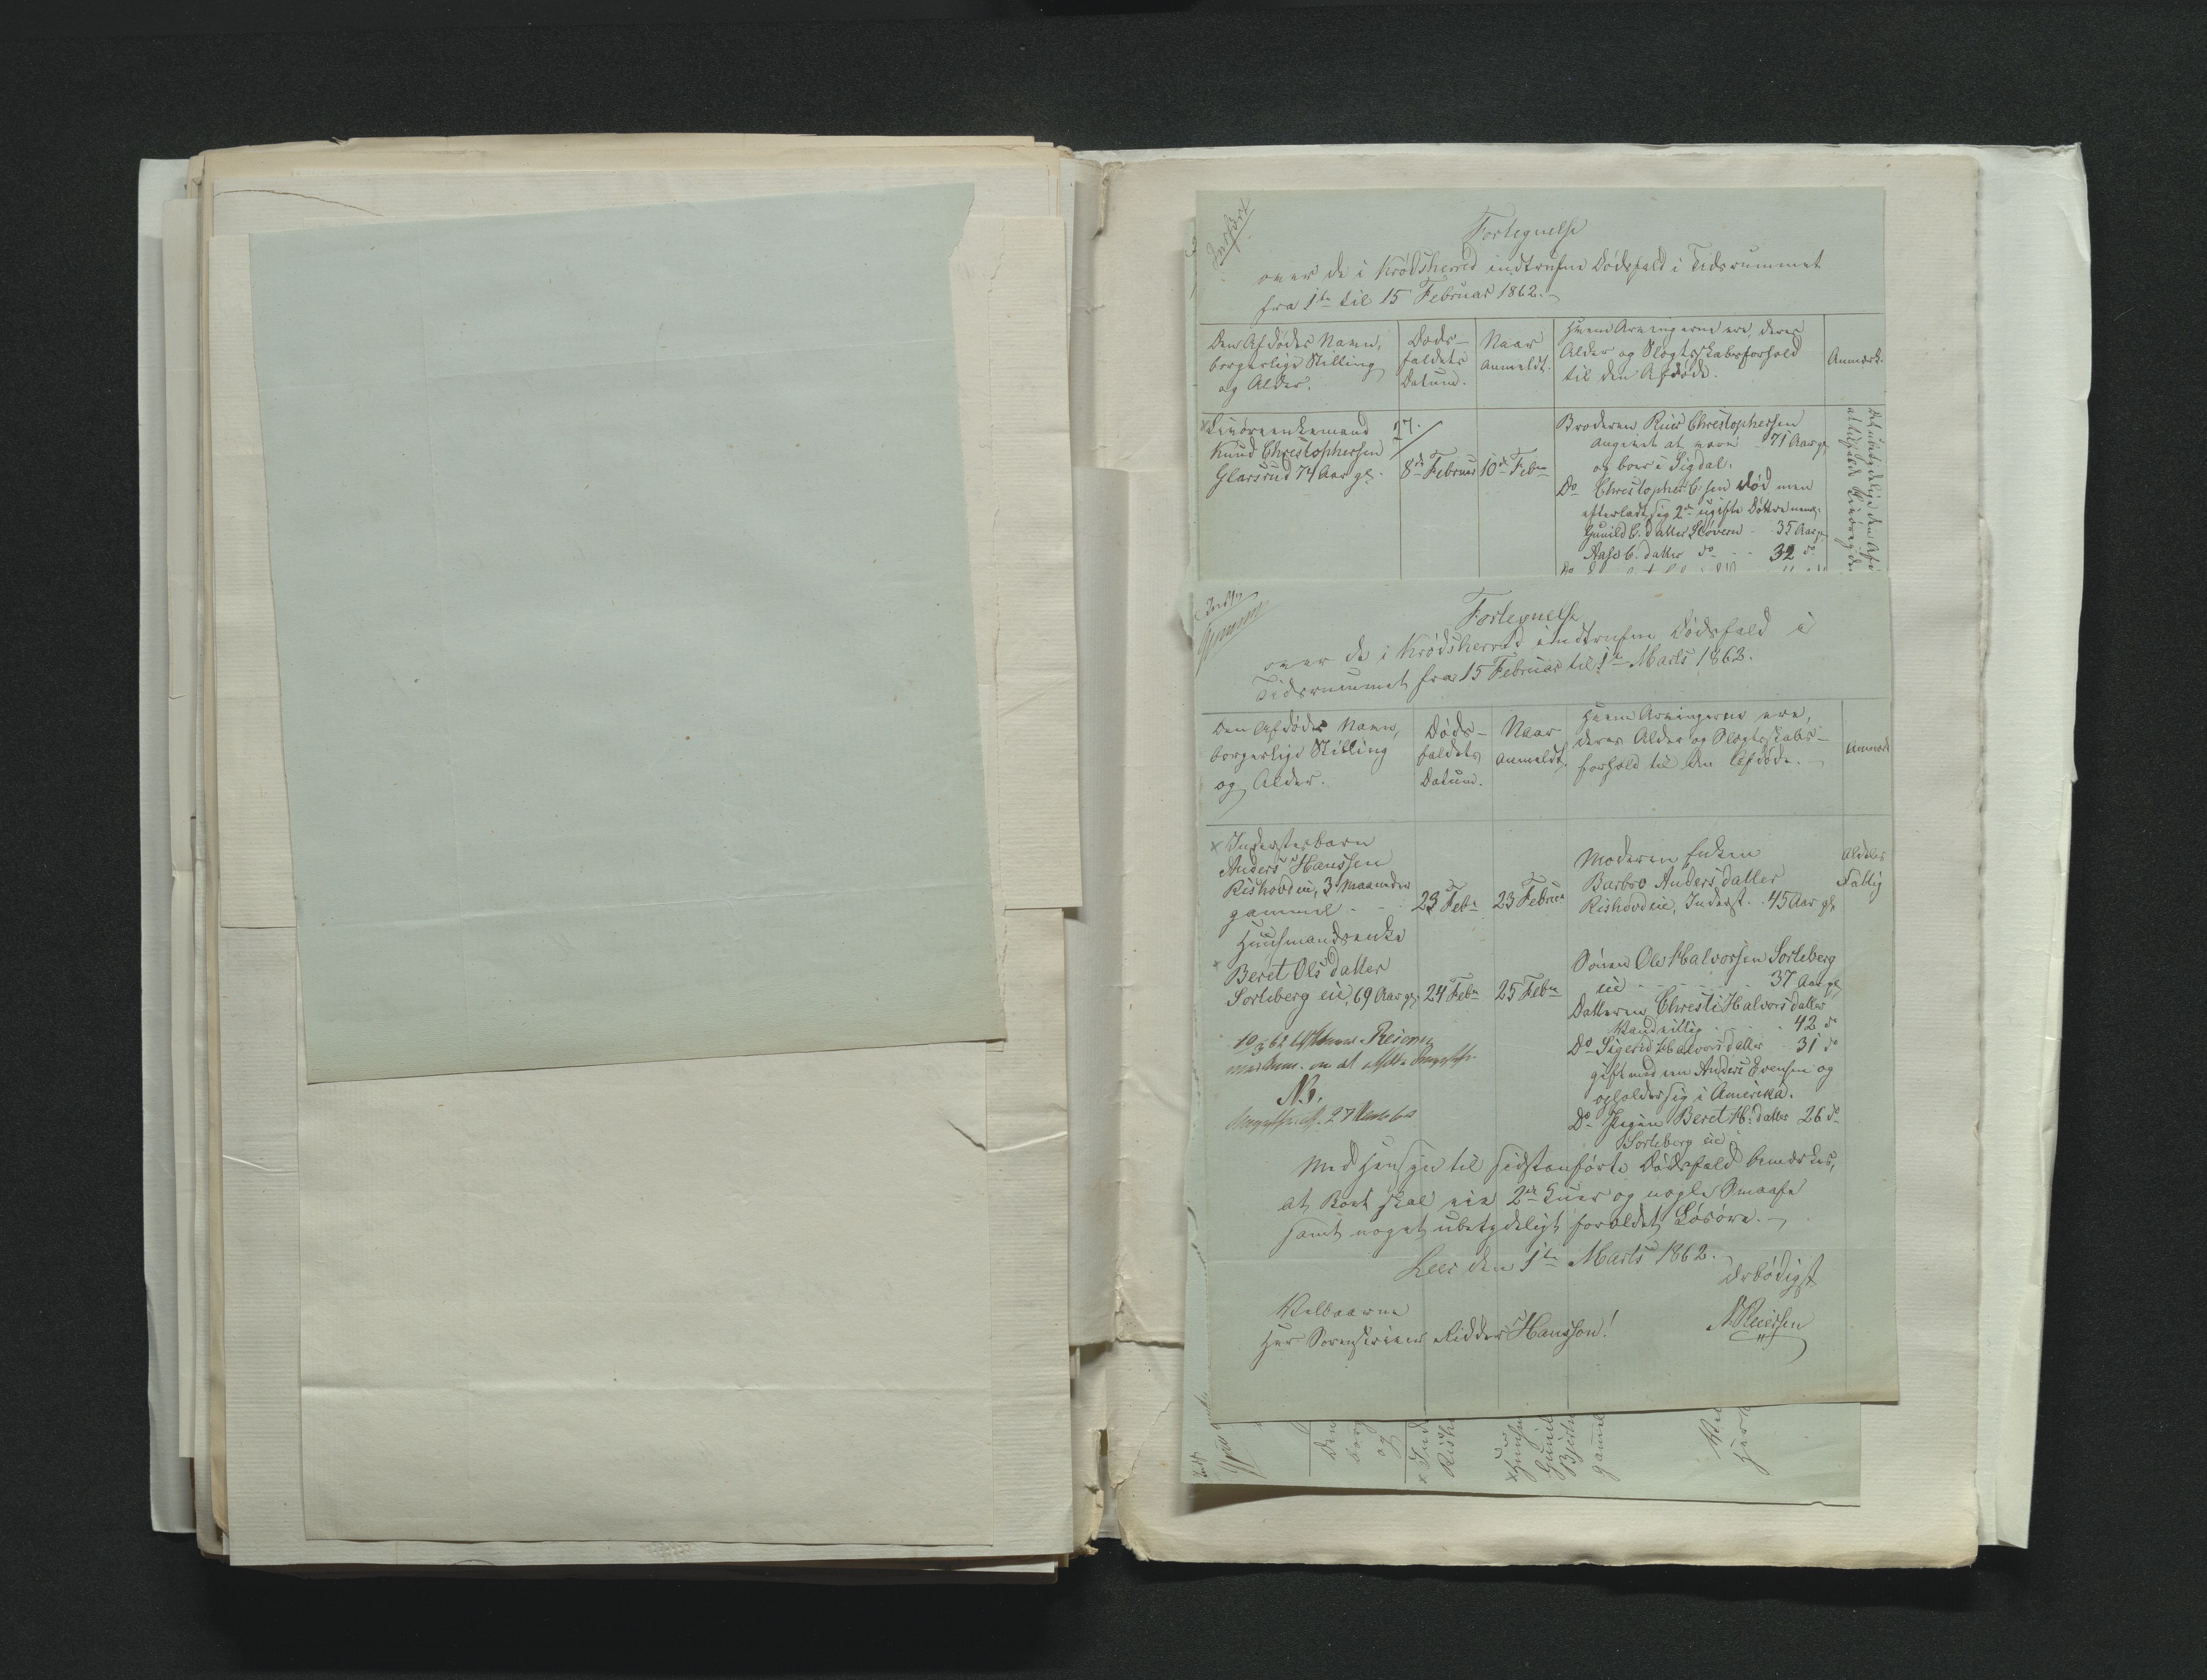 Indført
Fortegnelse
over de i Krødsherred indtrufne Dødsfald i Tidsrummet
fra 1te til 15 Februar 1862.
Den Afdødes Navn,
borgerlige Stilling
og Alder.
Døds-
faldets
Datum.
Naar
anmeldt.
Hvem Arvingerne ere, deres
Alder og Slægtskabsforhold
til den Afdøde.
Anmærk.
Livøreenkemand
Knud Christophersen
Glarsrud 74 Aar gl.
8de Februar
10de Febr
Broderen Ruer Christophersen
angivet at være 71 Aar gl.
og boer i Sigdal.
Do Christopher C.sen død men
efterladt sig 2de ugifte Døttre nemlig
Gunild C.datter Skovern - 35 Aar gl.
Aase C.datter do - - 32 do
Det ubetydelige den Af-
Fortegnelse
over de i Krødsherred indtrufne Dødsfald i
Tidsrummet fra 15 Februar til 1te Marts 1862.
Den Afdødes Navn,
borgerlige Stilling
og Alder.
Døds-
faldets
Datum.
Naar
anmeldt.
Hvem Arvingerne ere,
deres Alder og Slægtskabs-
forhold til den Afdøde.
Anmærk
x Inderstebarn
Anders Hanssen
Rishovdeie, 3 Maaneder
gammel - -
23 Febr
23 Februar
Moderen Enken
Barbro Andersdatter
Rishovdeie, Inderst. 45 Aar gl.
Aldeles
Fattig
Huusmandsenke
x Beret Olsdatter
Sorteberg eie, 69 Aar gl.
24 Febr
25 Febr
Sønnen Ole Halvorsen Sorteberg
eie - - - - 37 Aar gl.
Datteren Christi Halvorsdatter
- - 42 do
Do Sigrid Halvorsdatter 31 do
gift med en Anders Evensen og
opholder sig i Amerika.
Do Pigen Beret H.datter 26 do
Sorteberg eie
10/3 62
No.
27
Med Hensyn til sidstanførte Dødsfald bemærkes,
at Boet skal eie 2de Kuer og nogle Smaafæ
samt noget ubetydeligt foraldet Løsøre.
Leer den 1te Marts 1862.
Ærbødigst
N Ruersen
Velbaarne
Herr Sorenskriver Ridder Hansson!
Den
borg
og
x Ind
Rish
x Huus
Gunil
gammel
Vel
Herr